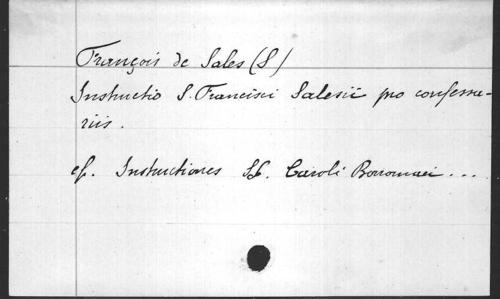 François de Sales (S)
Instructio S. Francisci Salesii pro confessa-
riis.
cf. Instructiones SS. Caroli Borromaei ...